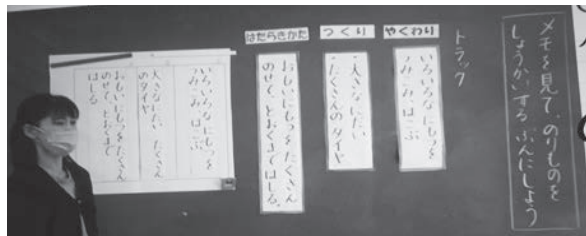 メモを見て、のりものを
しょうかいする ぶんにしよう
トラック
やくわり
いろいろな にもつを
つみこみ、はこぶ
つくり
・大きな にだい
・たくさんの タイヤ
はたらきかた
おもい にもつを たくさん
のせて、とおくまではしる。
いろいろな にもつを
つみこみ、はこぶ
大きな にだい たくさん
のタイヤ
おもい にもつを たくさん
のせて、とおくまで
はしる